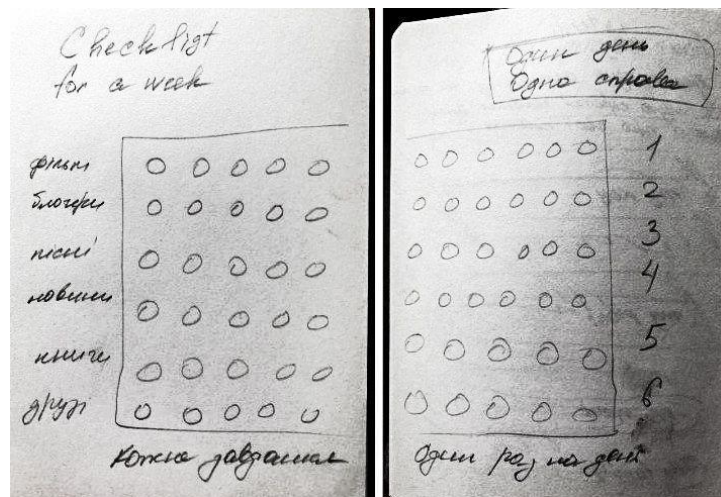 Checklist
for a week
фільми
блогери
пісні
новини
книги
друзі
Кожне завдання
Один день
Одна справа
1
2
3
4
5
6
Один раз на день